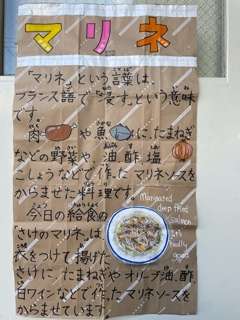 マリネ
「マリネ」という言葉は、
フランス語で"浸す"という意味
です。
肉や魚に、たまねぎ
などの野菜や油、酢、塩
こしょうなどで作ったマリネソースを
からませた料理です。
今日の給食の
「さけのマリネ」は、
衣をつけて揚げた
さけに、たまねぎやオリーブ油、酢、
白ワインなどで作ったマリネソースを
からませています
Marinated
deep fried
salmon
is
really
good